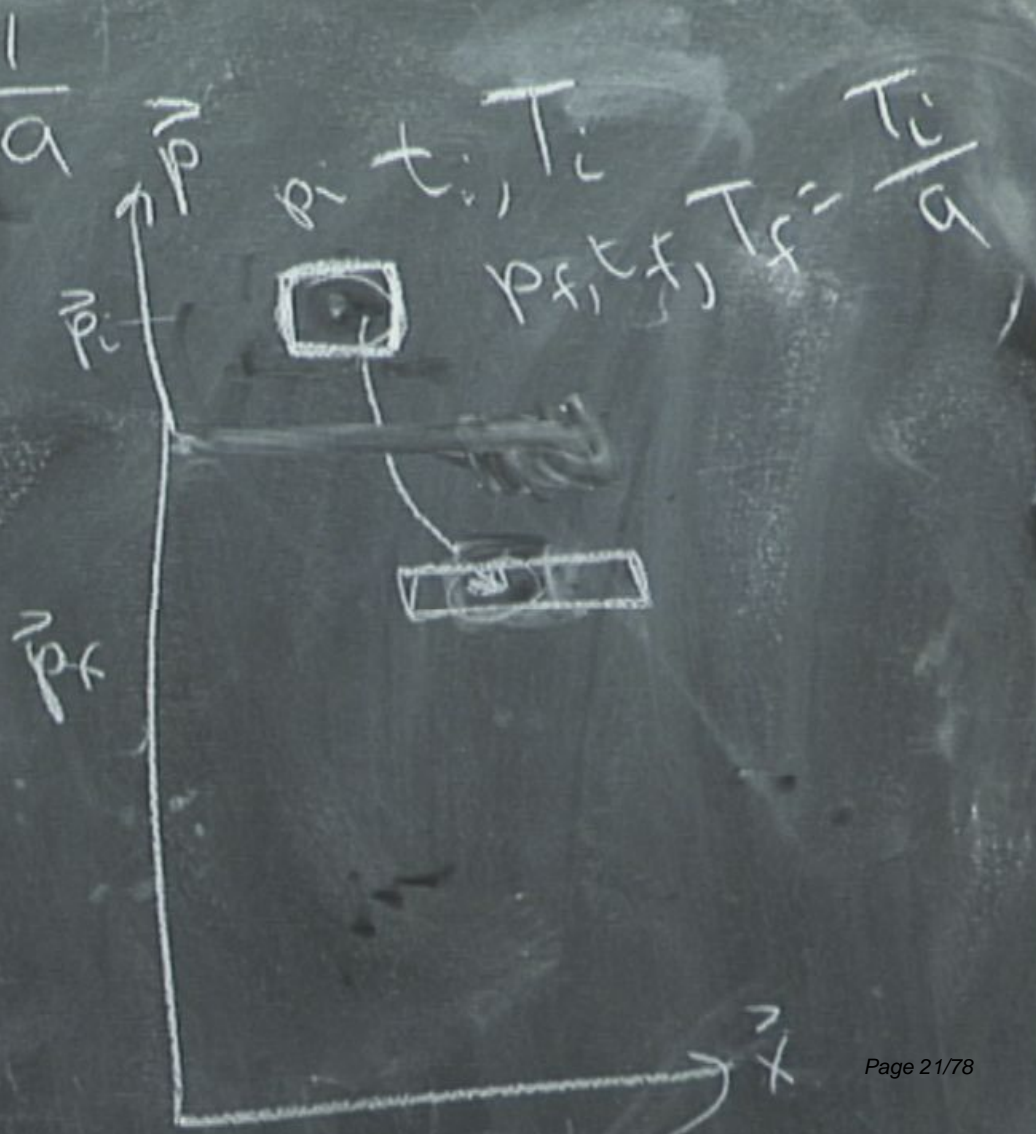 1/a
p⃗
p⃗ᵢ
pᵢ tᵢ, Tᵢ
p_f, t_f, T_f = Tᵢ/a
p⃗_f
x⃗
Page 21/78